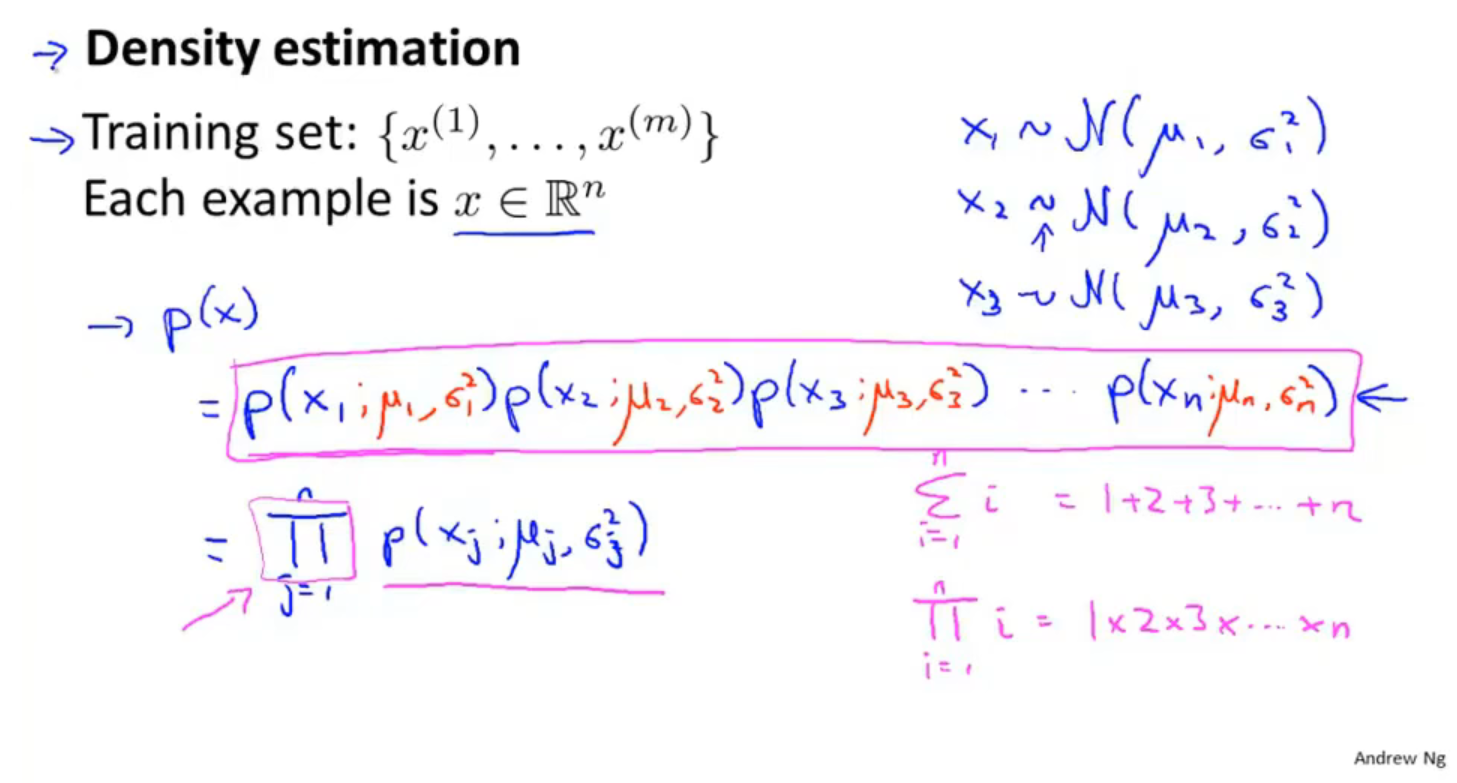 → Density estimation
→ Training set: {x⁽¹⁾, . . . , x⁽ᵐ⁾}
Each example is x ∈ ℝⁿ
x₁ ~ N(μ₁, σ₁²)
x₂ ~ N(μ₂, σ₂²)
↑
x₃ ~ N(μ₃, σ₃²)
→ p(x)
= p(x₁; μ₁, σ₁²) p(x₂; μ₂, σ₂²) p(x₃; μ₃, σ₃²) ··· p(xₙ; μₙ, σₙ²) ←
= ∏ⱼ₌₁ⁿ p(xⱼ; μⱼ, σⱼ²)
∑ᵢ₌₁ⁿ i = 1+2+3+···+n
∏ᵢ₌₁ⁿ i = 1×2×3×···×n
Andrew Ng